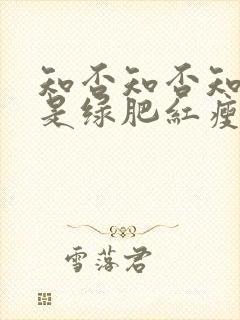 知否知否知
是绿肥红瘦
雪落君